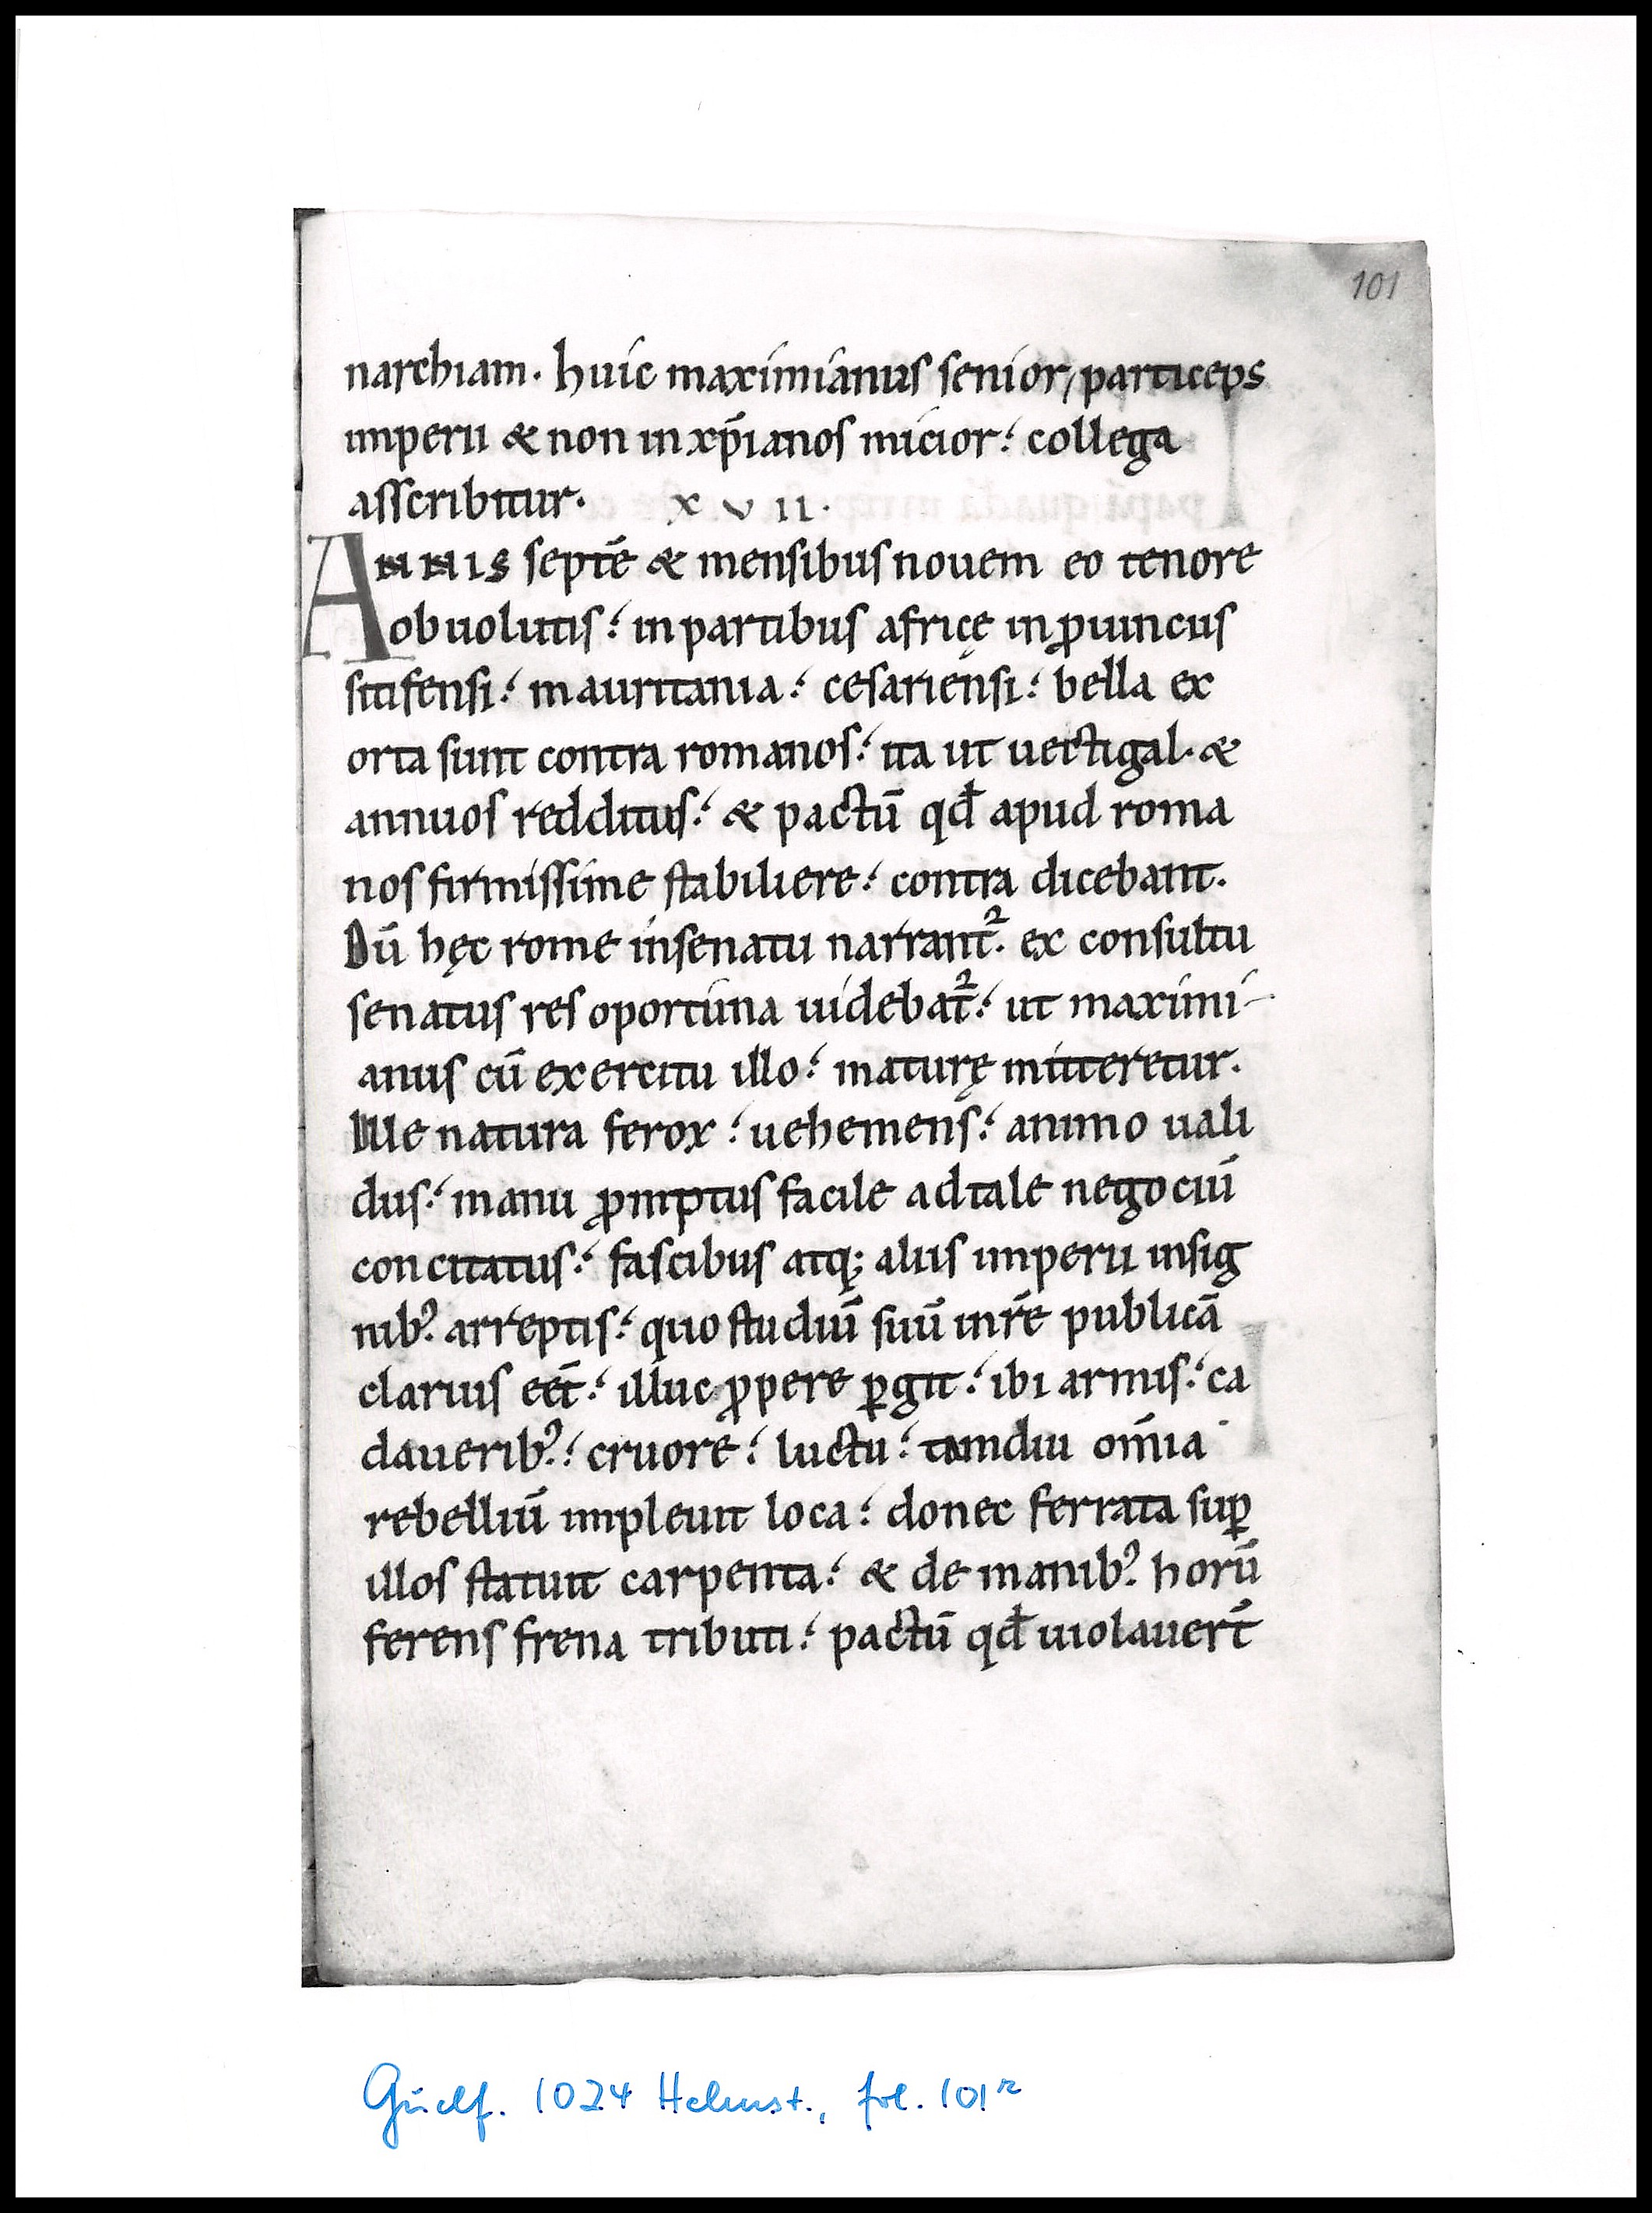 101
narchiam. huic maximianus senior, particeps
imperii & non in xp̄ianos micior: collega
asscribitur. XVII.
ANNIS septē & mensibus nouem eo tenore
obuolutis: in partibus africę in ꝓuinciis
sitifensi: mauritania: cesariensi: bella ex
orta sunt contra romanos: ita ut uectigal. &
annuos redditus: & pactū qđ apud roma
nos firmissime stabiliere: contra dicebant.
Dū hęc rome in senatu narrant᷑. ex consultu
senatus res oportuna uidebat᷑: ut maximi-
anus cū exercitu illo: maturę mitteretur.
Ille natura ferox: uehemens: animo uali
dus: manu ꝓmptus facile ad tale negociū
concitatus: fascibus atq; aliis imperii insig
nibꝰ. arreptis: quo studiū suū in rē publicā
clarius eēt: illuc ꝓpere ꝑgit: ibi armis: ca
daueribꝰ: cruore: luctu: tamdiu om̄ia
rebelliū impleuit loca: donec ferrata suꝑ
illos statuit carpenta: & de manibꝰ. horū
ferens frena tributi: pactū qđ uiolauer̄t
Guelf. 1024 Helmst., fol. 101r